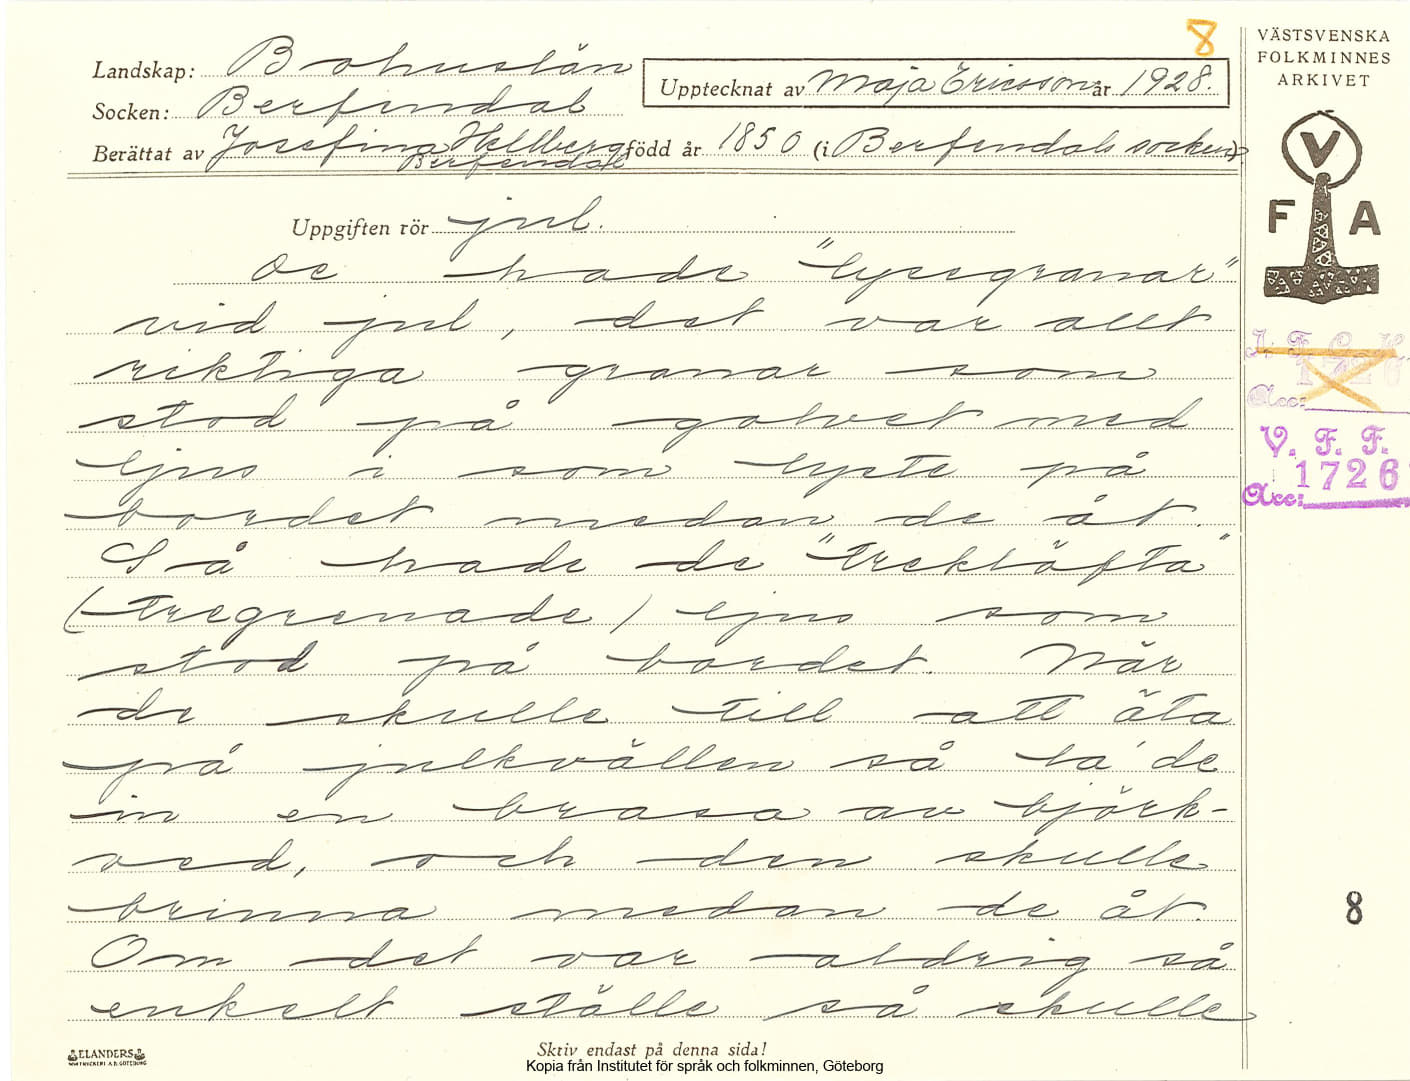 8
VÄSTSVENSKA
FOLKMINNES
ARKIVET
Landskap: Bohuslän
Upptecknat av Maja Ericsson år 1928.
Socken: Berfendal
Berättat av Josefina Hellberg född år 1850 (i Berfendals socken)
Berfendal
V
F A
Uppgiften rör jul.
De hade "lysegranar"
vid jul, det var allt
riktiga granar som
stod på golvet med
ljus i som lyste på
bordet medan de åt.
Så hade de "treklöfta"
(tregrenade) ljus som
stod på bordet. När
de skulle till att äta
på julkvällen så la' de
in en brasa av björk-
ved, och den skulle
brinna medan de åt.
Om det var aldrig så
enkelt ställe så skulle
Acc:
V. F. F.
1726
Acc:
8
ELANDERS
Skriv endast på denna sida!
Kopia från Institutet för språk och folkminnen, Göteborg